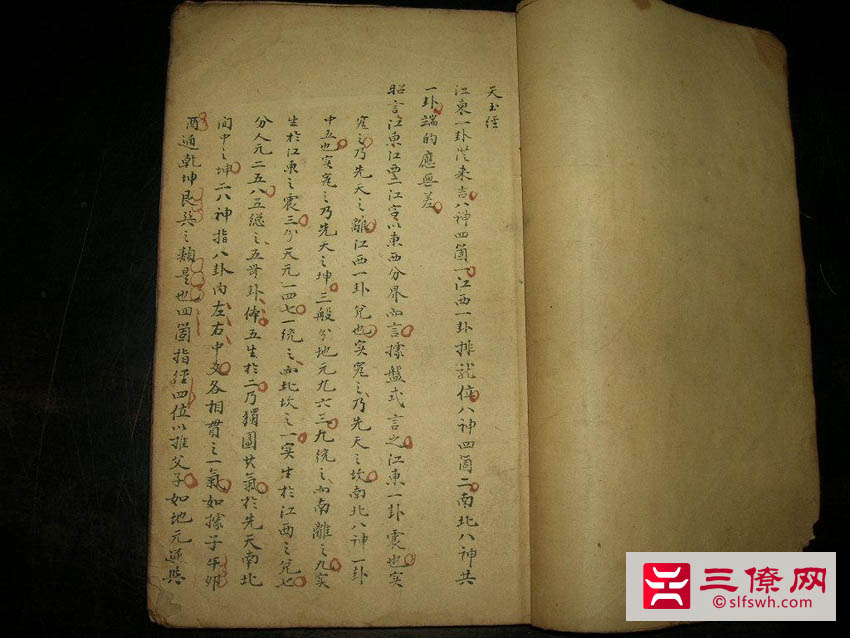 天玉經
江東一卦從来吉八神四箇一江西一卦排龍位八神四箇二南北八神共
一卦端的應無差
昭言江東江西一江字以東西分界而言據盤式言之江東一卦震也实
究之乃先天之離江西一卦兌也实究之乃先天之坎南北八神一卦
中五也实究之乃先天之坤三般分地元九六三九統之如南離之九实
生於江東之震三分天元一四七一統之如北坎之一实生於江西之兌七
分人元二五八五總之五无卦体五生於二乃獨圓其氣於先天南北
間中之坤二八神指八卦内左右中爻各相貫之一氣如據子午卯
酉通乾坤艮巽之類是也四箇指經四位以推父子如地元逆與
三僚网
©slfswh.com